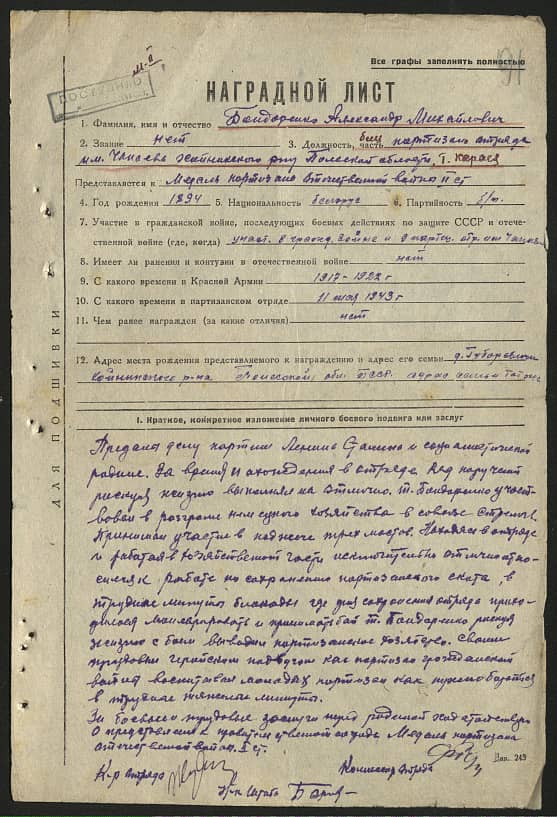 Все графы заполнять полностью
91
ПОСТУПИЛО
НАГРАДНОЙ ЛИСТ
1. Фамилия, имя и отчество Бондоренко Александр Михайлович
2. Звание нет 3. Должность, часть партизан отряда
им. Чапаева Хойникского р-на Полесской области
Представляется к Медаль партизана отечественной войны II ст
4. Год рождения 1894 5. Национальность белорус 6. Партийность б/п.
7. Участие в гражданской войне, последующих боевых действиях по защите СССР и отече-
ственной войне (где, когда) участ. в гражд. войне и в партиз. отр. им Чапаев
8. Имеет ли ранения и контузии в отечественной войне нет
9. С какого времени в Красной Армии 1917-1922 г
10. С какого времени в партизанском отряде 11 мая 1943 г
11. Чем ранее награжден (за какие отличия) нет
12. Адрес места рождения представляемого к награждению и адрес его семьи д.
Хойникского р-на Полесской обл. БССР. адрес семьи
ДЛЯ ПОДШИВКИ
I. Краткое, конкретное изложение личного боевого подвига или заслуг
Предан делу партии Ленина Сталина и социалистической
родине. За время нахождения в отряде. Ряд поручений
рискуя жизнью выполнял на отлично. т. Бондаренко участ-
вовал в разгроме немецкого хозяйства в совхозе
Принимал участие в поджоге трех мостов. Находясь в отряде
и работая в хозяйственной части исключительно отлично отно-
сился к работе по сохранению партизанского скота, в
трудные минуты блокады где для сохранения отряда прихо-
дилося маневрировать и принимать бой т. Бондаренко рискуя
жизнью с боем выводил партизанское хозяйство. Своим
трудовым геройским подвигом как партизан гражданской
войны воспитывал молодых партизан как нужно бороться
в трудные тяжелые минуты.
За боевые и трудовые заслуги перед родиной ходатайствую
о представлении к правительственной награде Медаль партизана
отечественной войны II ст.
К-р отряда
Комиссар отряда
Н-к штаба
Зак. 249